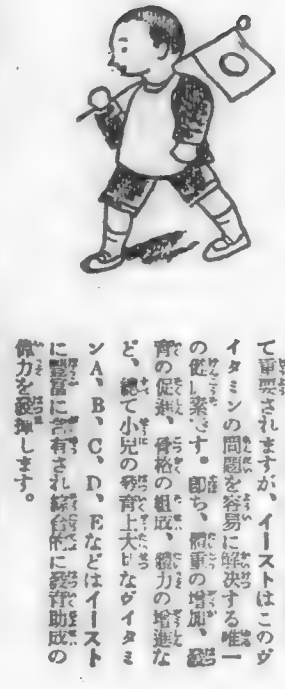 て重要されますが、イーストはこのヴ
イタミンの問題を容易に解決する唯一
の健康素です。即ち、體重の增加、發
育の促進、骨格の組成、體力の增進な
ど、總て小兒の發育上大切なヴイタミ
ンA、B、C、D、Eなどはイースト
に豐富に含有され綜合的に發育助成の
偉力を發揮します。